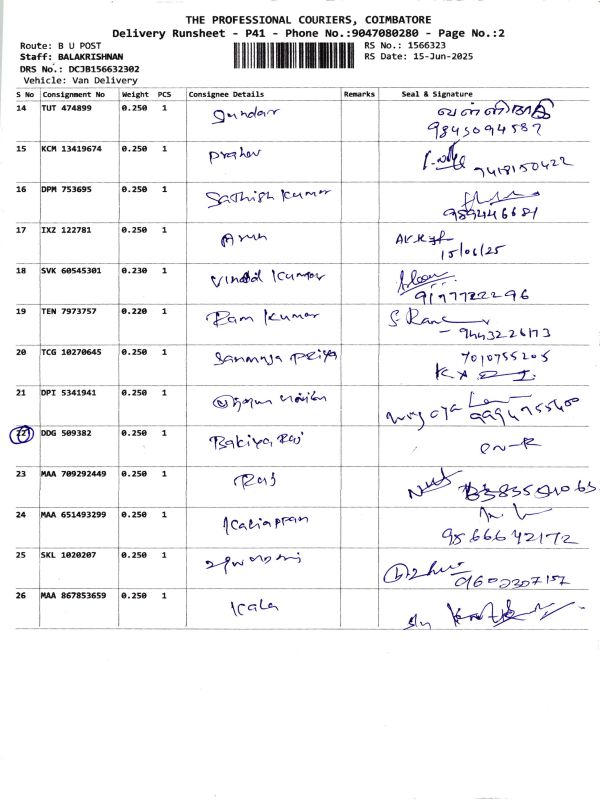 THE PROFESSIONAL COURIERS, COIMBATORE
Delivery Runsheet - P41 - Phone No.:9047080280 - Page No.:2
Route: B U POST
RS No.: 1566323
Staff: BALAKRISHNAN
RS Date: 15-Jun-2025
DRS No.: DCJB156632302
Vehicle: Van Delivery
S No Consignment No Weight PCS Consignee Details Remarks Seal & Signature
14 TUT 474899 0.250 1 Sundar
9845094587
15 KCM 13419674 0.250 1
9418150422
16 DPM 753695 0.250 1 Sathish Kumar
17 IXZ 122781 0.250 1 Arun
15/06/25
18 SVK 60545301 0.230 1 Kumar
9177722296
19 TEN 7973757 0.220 1 Ram Kumar
9443226173
20 TCG 10270645 0.250 1 Priya
7010755205
21 DPI 5341941 0.250 1
22 DDG 509382 0.250 1 Bakiya Raj
23 MAA 709292449 0.250 1 Raj
24 MAA 651493299 0.250 1 Kaliappan
9566642172
25 SKL 1020207 0.250 1
26 MAA 867853659 0.250 1 Kala